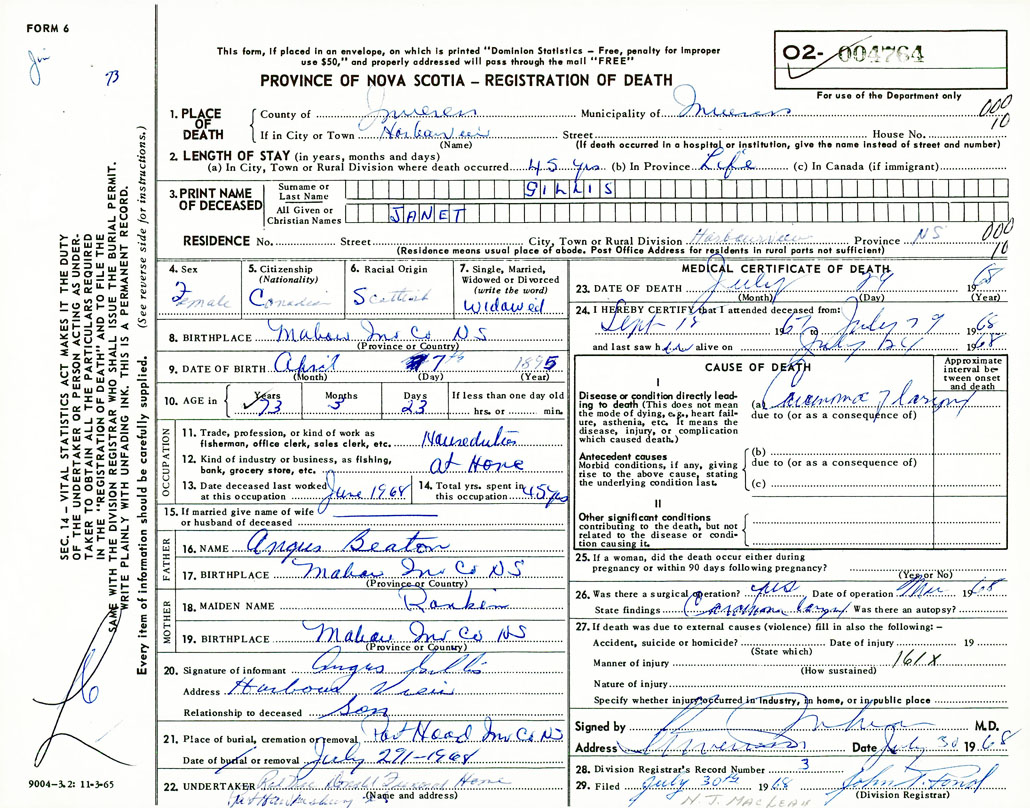 FORM 6
73
This form, if placed in an envelope, on which is printed "Dominion Statistics – Free, penalty for improper
use $50," and properly addressed will pass through the mail "FREE"
PROVINCE OF NOVA SCOTIA – REGISTRATION OF DEATH
O2- 004764
For use of the Department only
1. PLACE OF DEATH County of Inverness Municipality of Inverness 000
If in City or Town Harbourview Street House No. 10
(Name) (If death occurred in a hospital or institution, give the name instead of street and number)
2. LENGTH OF STAY (in years, months and days)
(a) In City, Town or Rural Division where death occurred 45 yrs. (b) In Province Life (c) In Canada (if immigrant)
3. PRINT NAME OF DECEASED
Surname or Last Name GILLIS
All Given or Christian Names JANET
RESIDENCE No. Street City, Town or Rural Division Harbourview Province NS 000
(Residence means usual place of abode. Post Office Address for residents in rural parts not sufficient) 10
4. Sex Female
5. Citizenship (Nationality) Canadian
6. Racial Origin Scottish
7. Single, Married, Widowed or Divorced (write the word) Widowed
8. BIRTHPLACE Mabou Inv Co NS
(Province or Country)
9. DATE OF BIRTH April 7th 1895
(Month) (Day) (Year)
10. AGE in Years 73 Months 3 Days 23 If less than one day old hrs. or min.
OCCUPATION
11. Trade, profession, or kind of work as fisherman, office clerk, sales clerk, etc. Houseduties
12. Kind of industry or business, as fishing, bank, grocery store, etc. at Home
13. Date deceased last worked at this occupation June 1968
14. Total yrs. spent in this occupation 45 yrs
15. If married give name of wife or husband of deceased
FATHER
16. NAME Angus Beaton
17. BIRTHPLACE Mabou Inv Co NS
(Province or Country)
MOTHER
18. MAIDEN NAME Rankin
19. BIRTHPLACE Mabou Inv Co NS
(Province or Country)
20. Signature of informant Angus Gillis
Address Harbour View
Relationship to deceased Son
21. Place of burial, cremation or removal Port Hood Inv Co NS
Date of burial or removal July 1968
22. UNDERTAKER Funeral Home
(Name and address)
MEDICAL CERTIFICATE OF DEATH
23. DATE OF DEATH July 29 1968
(Month) (Day) (Year)
24. I HEREBY CERTIFY that I attended deceased from:
Sept 18 1967 to July 29 1968
and last saw her alive on July 24 1968
CAUSE OF DEATH
Approximate interval between onset and death
I
Disease or condition directly leading to death (This does not mean the mode of dying, e.g., heart failure, asthenia, etc. It means the disease, injury, or complication which caused death.)
(a) Carcinoma of larynx
due to (or as a consequence of)
Antecedent causes
Morbid conditions, if any, giving rise to the above cause, stating the underlying condition last.
(b)
due to (or as a consequence of)
(c)
II
Other significant conditions
contributing to the death, but not related to the disease or condition causing it.
25. If a woman, did the death occur either during
pregnancy or within 90 days following pregnancy?
(Yes or No)
26. Was there a surgical operation? yes Date of operation Mar 1968
State findings Carcinoma larynx Was there an autopsy?
27. If death was due to external causes (violence) fill in also the following: –
Accident, suicide or homicide? Date of injury 19
(State which)
Manner of injury 161x
(How sustained)
Nature of injury
Specify whether injury occurred in industry, in home, or in public place
Signed by M.D.
Address Inverness Date July 30 1968
28. Division Registrar's Record Number 3
29. Filed July 30th 1968
(Division Registrar)
N. J. MacLean
SEC. 14 – VITAL STATISTICS ACT MAKES IT THE DUTY
OF THE UNDERTAKER OR PERSON ACTING AS UNDER-
TAKER TO OBTAIN ALL THE PARTICULARS REQUIRED
IN THE "REGISTRATION OF DEATH" AND TO FILE THE
SAME WITH THE DIVISION REGISTRAR WHO SHALL ISSUE THE BURIAL PERMIT.
WRITE PLAINLY WITH UNFADING INK. THIS IS A PERMANENT RECORD.
Every item of information should be carefully supplied. (See reverse side for instructions.)
9004-3.2: 11-3-65